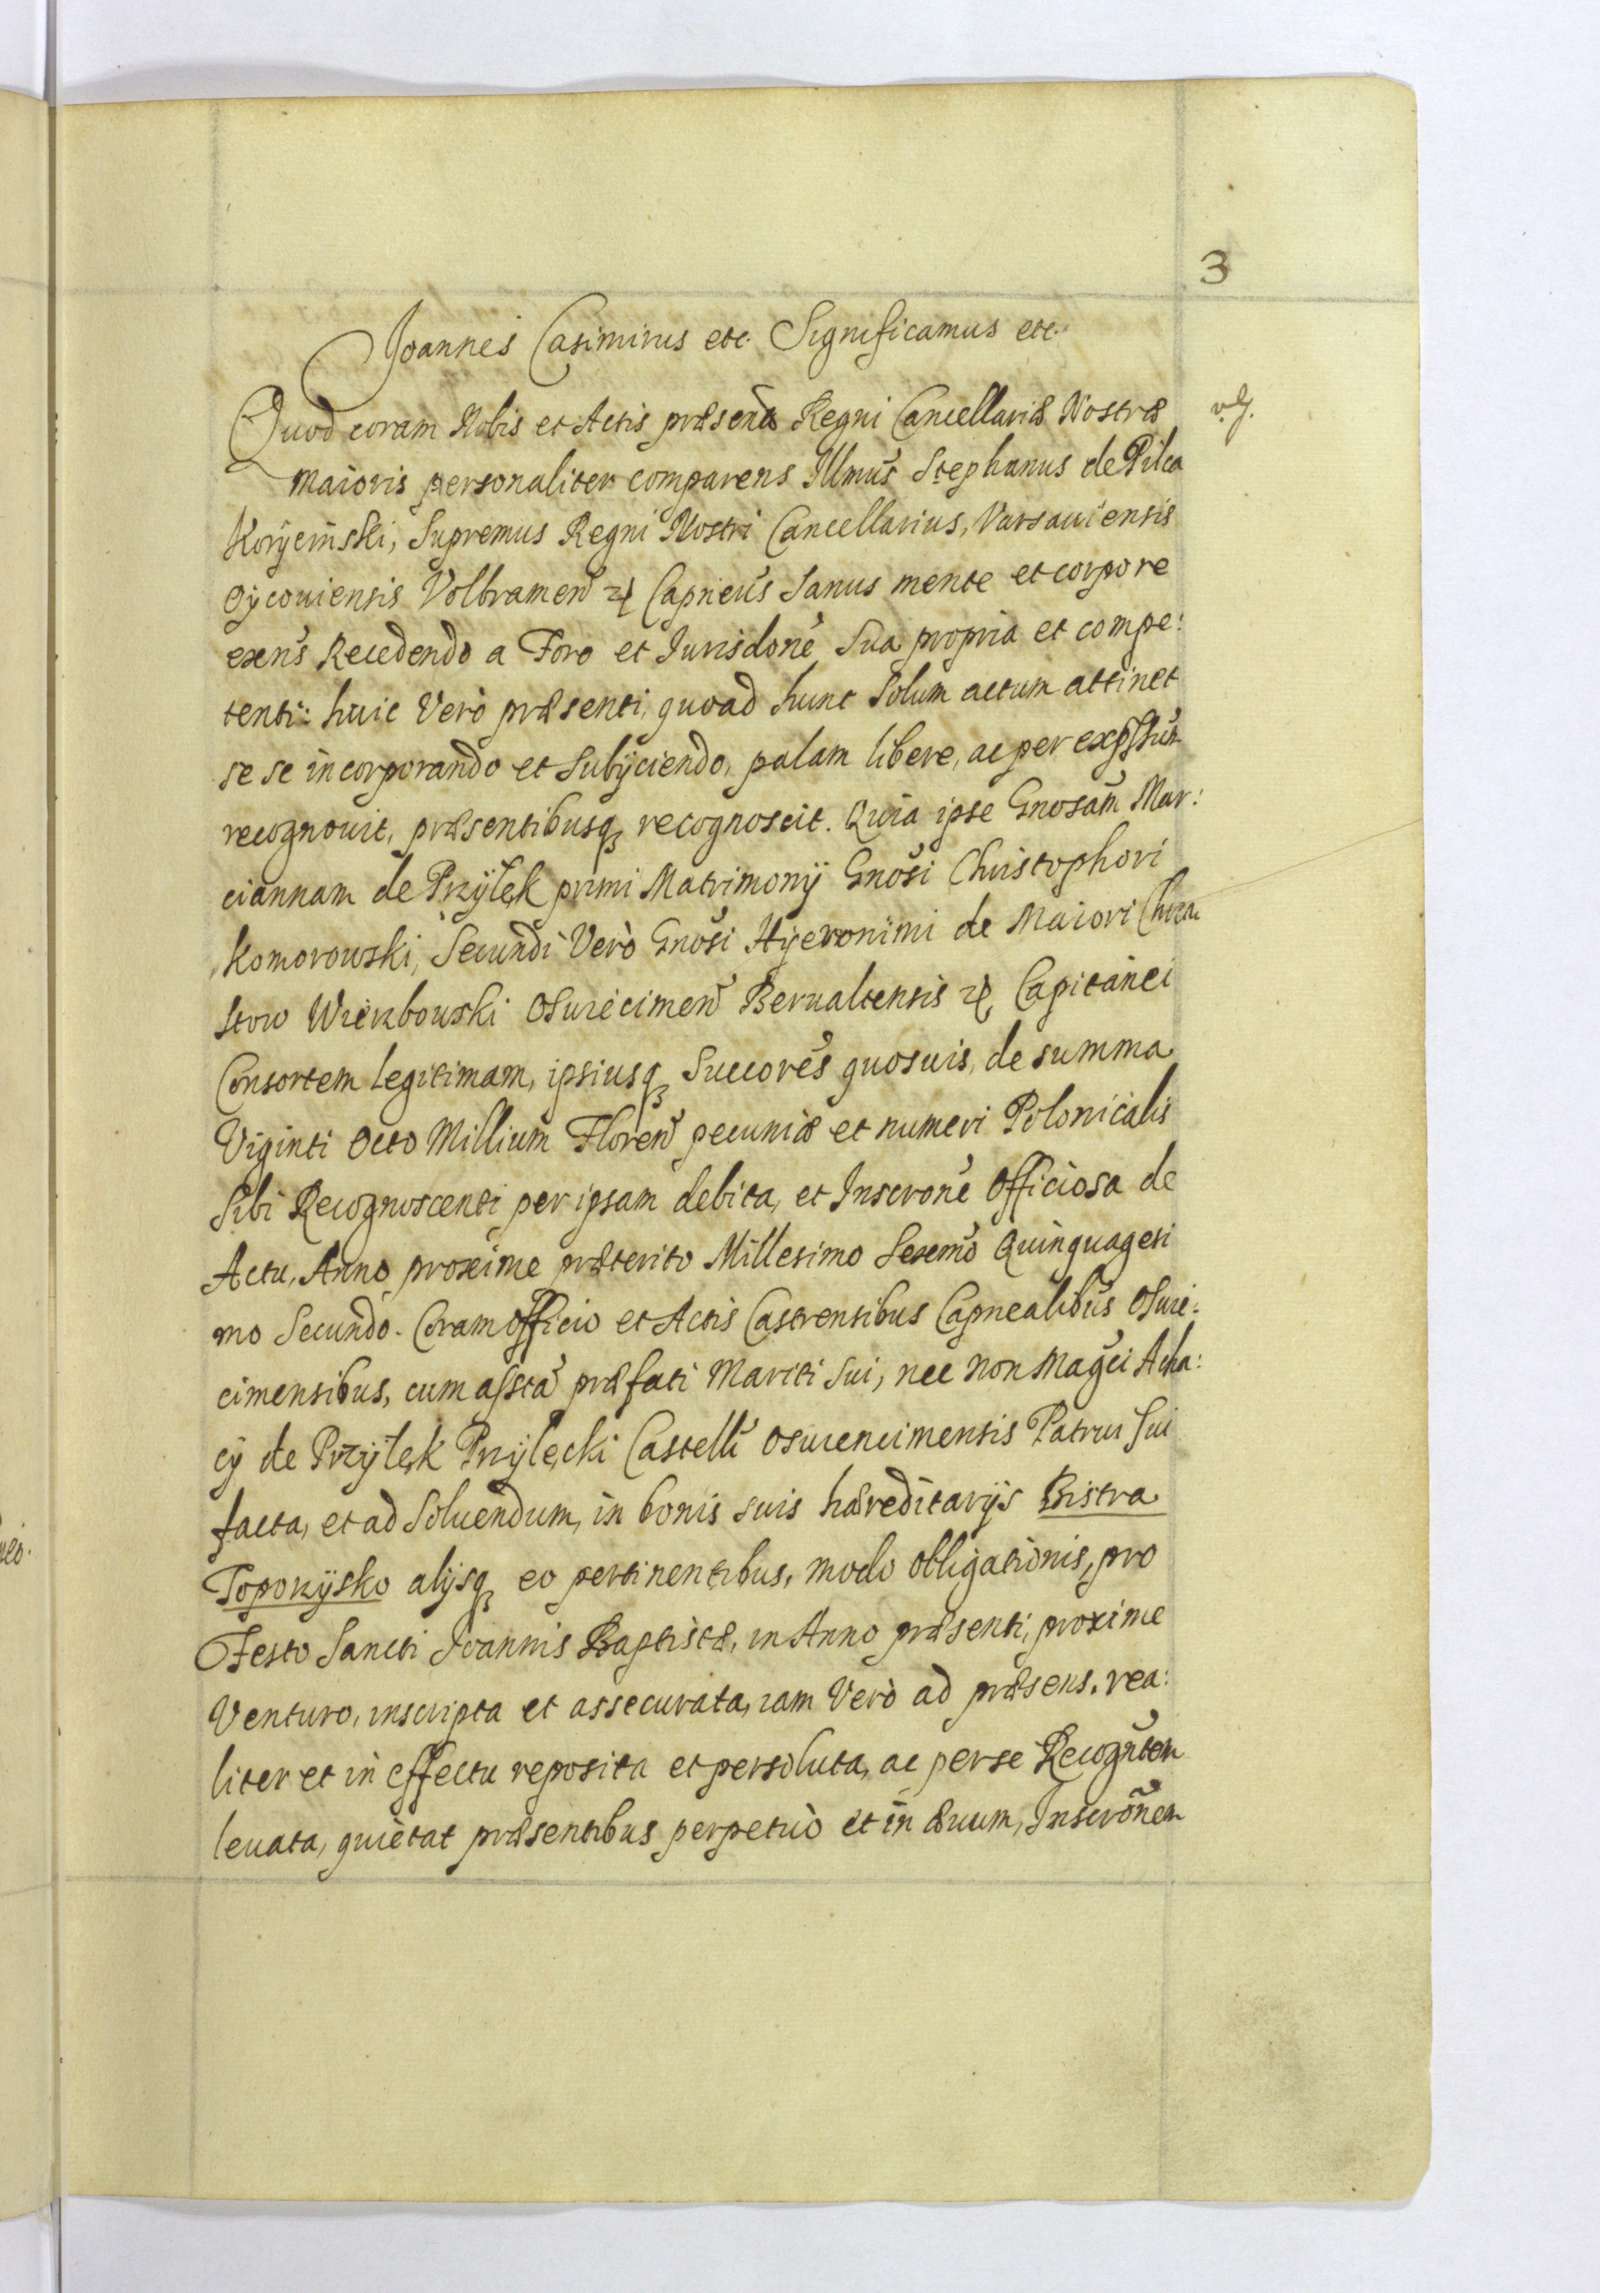 3
Joannes Casimirus etc. Significamus etc.
Quod coram Nobis et Actis præsentĩb Regni Cancellariæ Nostræ
v.g.
maioris personaliter comparens Illmus Stephanus de Pilca
Koryciński, Supremus Regni Nostri Cancellarius, Varsauiensis
Oycouiensis Volbramen̄ etc Capneus Sanus mente et corpore
exens Recedendo a Foro et Iurisdone Sua propria et compe:
tenti: huic Verò præsenti, quoad hunc Solum actum attinet
se se incorporando et Subyciendo, palam libere, ac per expssum
recognouit, præsentibusq recognoscit. Quia ipse Gnosam Mar:
ciannam de Przyłęk primi Matrimony Gnosi Christophori
Komorowski, Secundi Verò Gnosi Hyeronimi de Maiori Chrza
stow Wierzbowski Osuiecimen̄ Beruallensis etc Capitanei
Consortem legitimam, ipsiusq Succores quosuis, de summa
Viginti Octo Millium Floren̄ pecuniæ et numeri Polonicalis
Sibi Recognoscenti per ipsam debita, et Inscrone Officiosa de
Actu, Anno proxime præterito Millesimo Sexcmo Quinquagesi
mo Secundo. Coram Officio et Actis Castrensibus Capnealibus Osuie:
cimensibus, cum assta præfati Mariti Sui, nec non Magci Acha:
cy de Przyłęk Przyłęcki Castelli Osuiencimensis Patrui Sui
facta, et ad Soluendum, in bonis suis hæreditarijs Bistra
Toporzysko alijsq eo pertinentibus, modo obligationis, pro
Festo Sancti Joannis Baptistæ, in Anno præsenti, proxime
Venturo, inscripta et assecurata, iam Verò ad præsens. rea:
liter et in effectu reposita et persoluta, ac per se Recogntem
leuata, quietat præsentibus perpetuò et in æuum, Inscronem